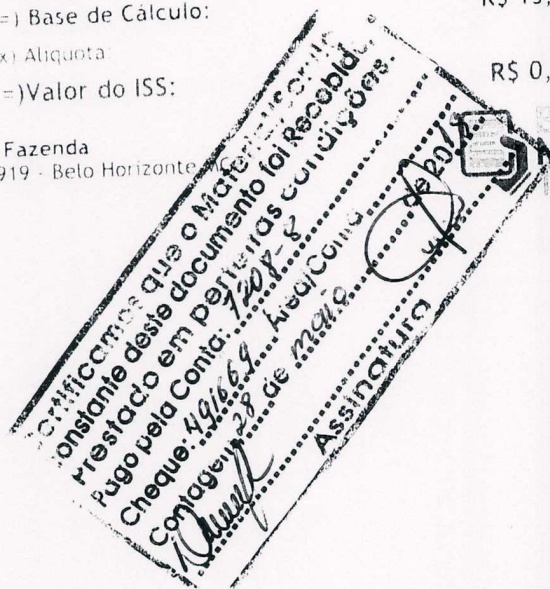 (=) Base de Cálculo:
(x) Alíquota:
(=)Valor do ISS:
R$ 0,
Fazenda
919 - Belo Horizonte
que o Material
onstante deste documento foi Recebido
Prestado em perfeitas condições.
Pago pela Conta: 1208-8
Cheque: 491669 Area/Coma
Contagem 28 de maio de 201
Assinatura